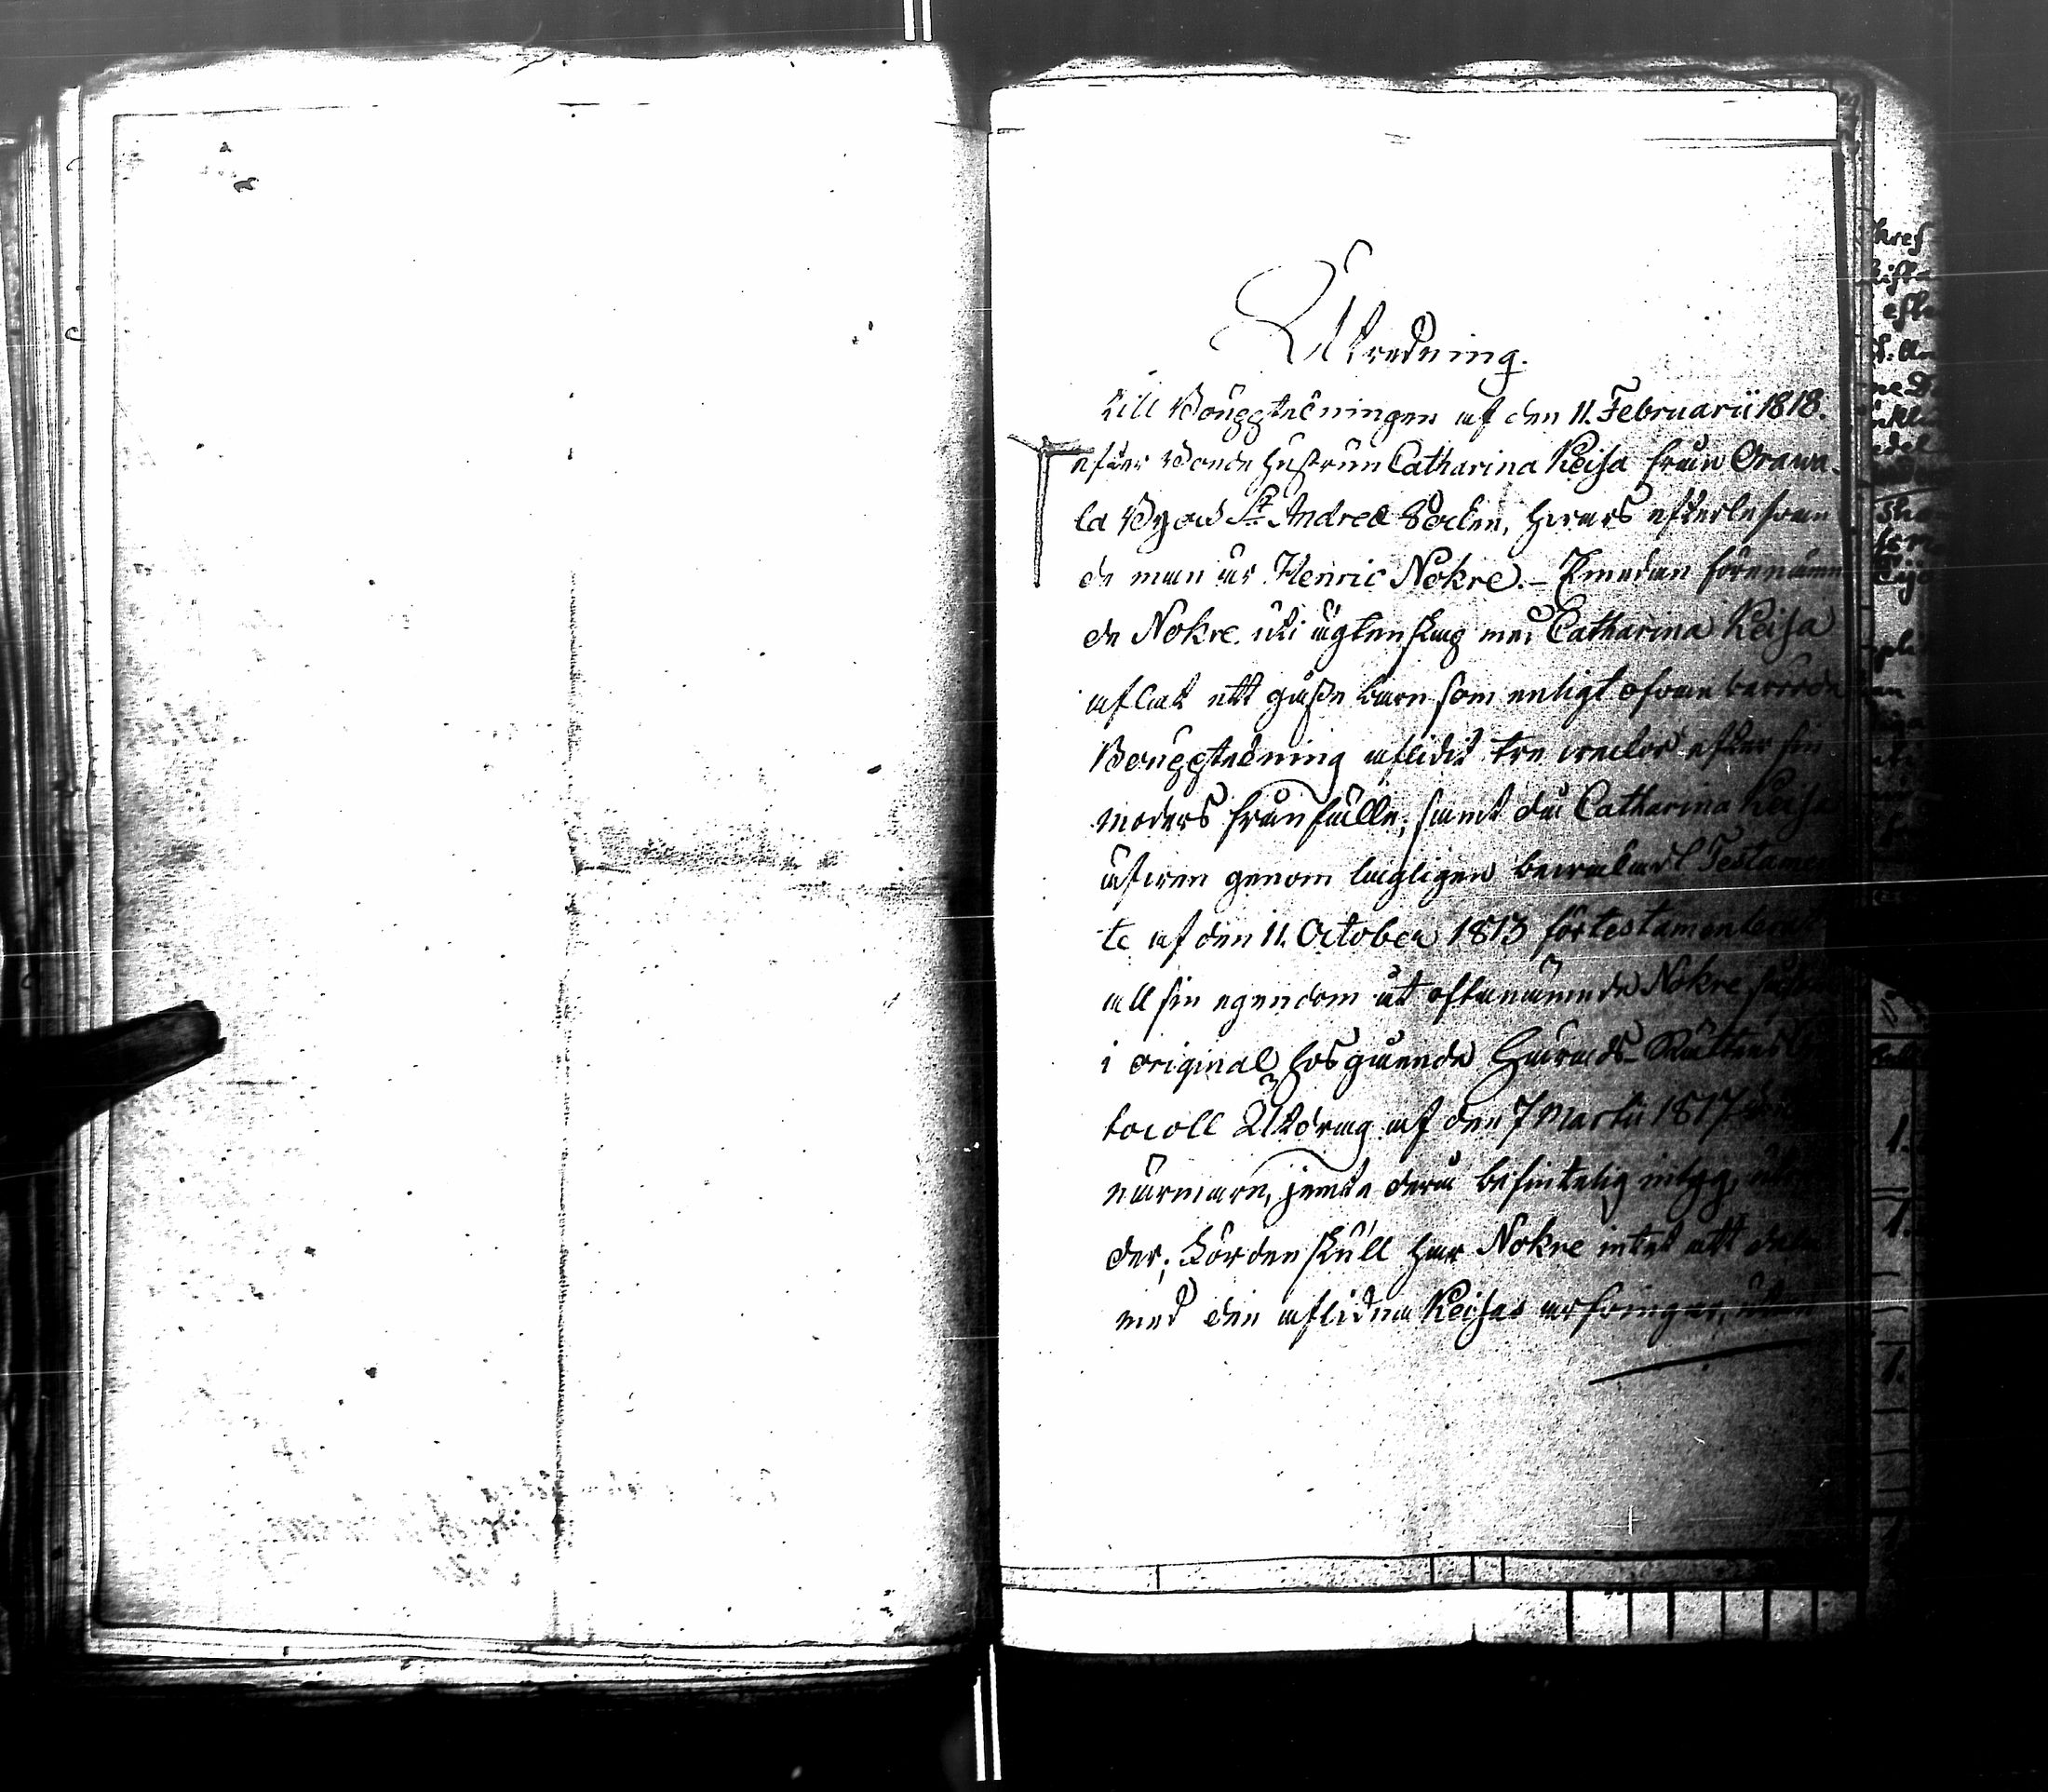 Utredning.
till Bouppteckningen af den 11. Februarii 1818.
efter Bonde hustrun Catharina Keisa från Orawa-
la By och St. Andreæ Socken, hwars efterlefwan
de man är Henric Nokre. - Emedan förenämn
de Nokre uti ägtenskap med Catharina Keisa
aflat ett gosse barn som enligt ofwan berörde
Bouppteckning aflidit tre weckor efter sin
moders frånfälle; samt då Catharina Keisa
äfwen genom lagligen bewakadt Testamen
te af den 11. October 1813 förtestamenterat
all sin egendom åt oftanämnde Nokre
i original hosgående Härads-Rättens
tocoll Utdrag af den 7 Martii 1817
närmare, jemte derå befintelig intyg,
der; för den skull har Nokre intet att dela
med den aflidna Keisas arfwingar, utan